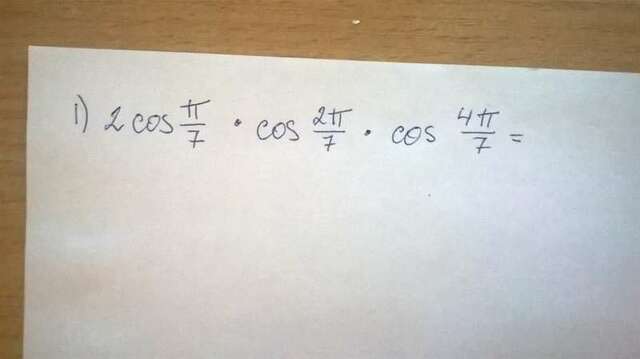 1) 2 cos π/7 · cos 2π/7 · cos 4π/7 =